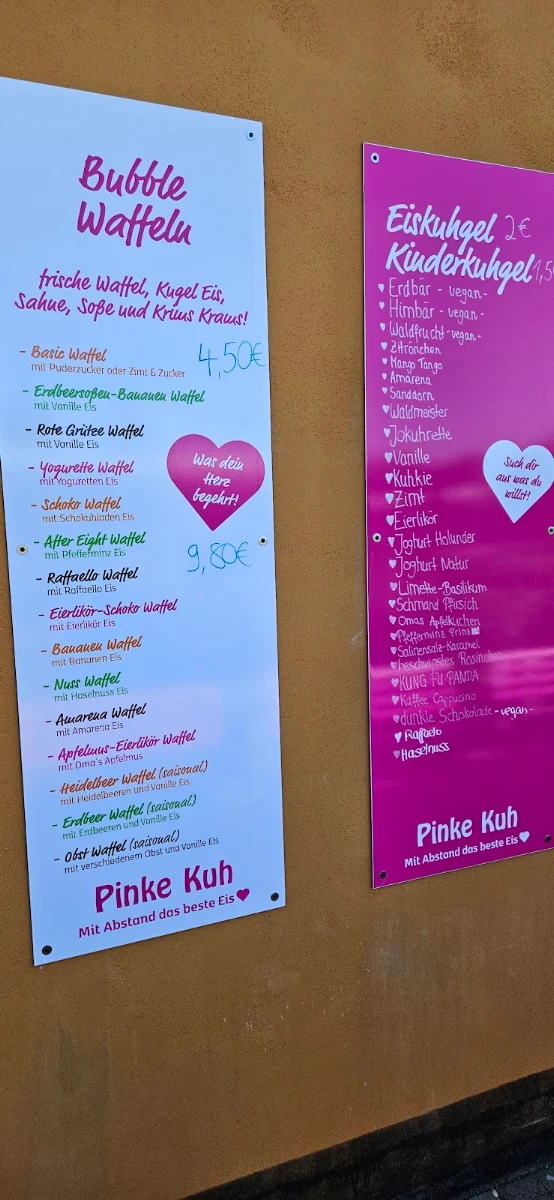 Bubble
Waffeln
frische Waffel, Kugel Eis,
Sahne, Soße und Krims Krams!
- Basic Waffel 4,50€
mit Puderzucker oder Zimt & Zucker
- Erdbeersoßen-Bananen Waffel
mit Vanille Eis
- Rote Grütze Waffel
mit Vanille Eis
- Yogurette Waffel
mit Yoguretten Eis
- Schoko Waffel
mit Schokuhladen Eis
- After Eight Waffel
mit Pfefferminz Eis
- Raffaello Waffel
mit Raffaello Eis
- Eierlikör-Schoko Waffel
mit Eierlikör Eis
- Bananen Waffel
mit Bananen Eis
- Nuss Waffel
mit Haselnuss Eis
- Amarena Waffel
mit Amarena Eis
- Apfelmus-Eierlikör Waffel
mit Oma's Apfelmus
- Heidelbeer Waffel (saisonal)
mit Heidelbeeren und Vanille Eis
- Erdbeer Waffel (saisonal)
mit Erdbeeren und Vanille Eis
- Obst Waffel (saisonal)
mit verschiedenem Obst und Vanille Eis
Was dein
Herz
begehrt!
9,80€
Pinke Kuh
Mit Abstand das beste Eis♥
Eiskuhgel 2€
Kinderkuhgel 1,5
♥Erdbär - vegan-
♥Himbär - vegan-
♥Waldfrucht-vegan-
♥Zitrönchen
♥Mango Tango
♥Amarena
♥Sanddorn
♥Waldmeister
♥Jokuhrette
♥Vanille
♥Kuhkie
♥Zimt
♥Eierlikör
♥Joghurt Holunder
♥Joghurt Natur
♥Limette-Basilikum
♥Schmand Pfirsich
♥Omas Apfelkuchen
♥Pfefferminz Prinz
♥Salinensalz-Karamel
♥beschwipstes Rosinchen
♥KUNG FU PANDA
♥Kaffee Cappucino
♥dunkle Schokolade-vegan-
♥Raffaelo
♥Haselnuss
Such dir
aus was du
willst!
Pinke Kuh
Mit Abstand das beste Eis♥